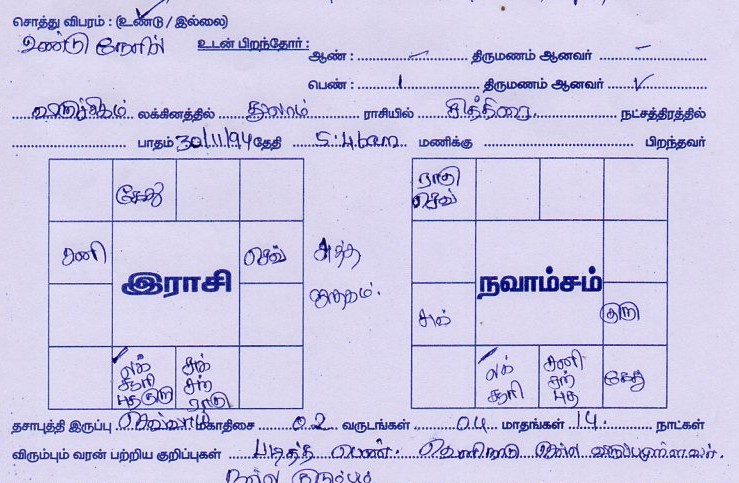 சொத்து விபரம் : (உண்டு / இல்லை)
உண்டு
உடன் பிறந்தோர் : ஆண் : திருமணம் ஆனவர் –
பெண் : 1 திருமணம் ஆனவர் √
லக்கினத்தில் துலாம் ராசியில் சித்திரை நட்சத்திரத்தில்
பாதம் 30/11/94 தேதி 5:46am மணிக்கு பிறந்தவர்
கேது
ராகு
செவ்
சனி
செவ்
இராசி
நவாம்சம்
குரு
லக்
சூரி
புத குரு
சுக்
சந்
ராகு
லக்
சூரி
சனி
சந்
புத
கேது
தசாபுத்தி இருப்பு செவ்வாய் மகாதிசை 02 வருடங்கள் 04 மாதங்கள் 14 நாட்கள்
விரும்பும் வரன் பற்றிய குறிப்புகள் படித்த பெண்.
நல்ல குடும்பம்